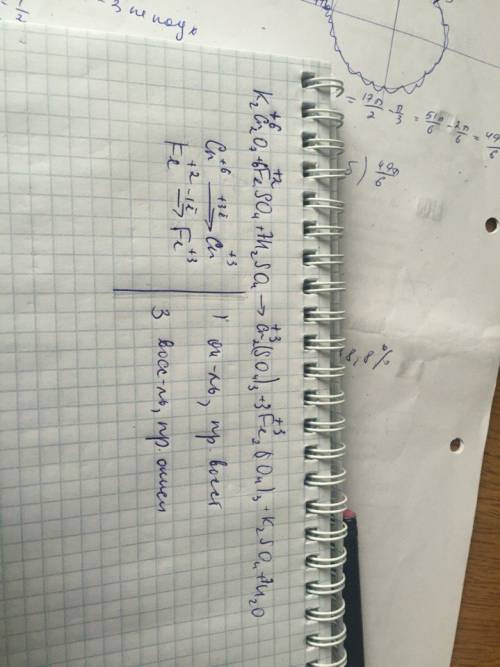 K₂Cr₂⁺⁶O₇ + 6Fe⁺²SO₄ + 7H₂SO₄ → Cr₂⁺³(SO₄)₃ + 3Fe₂⁺³(SO₄)₃ + K₂SO₄ + 7H₂O
Cr⁺⁶ +3ē → Cr⁺³ | 1 ок-ль, пр. восст
Fe⁺² -1ē → Fe⁺³ | 3 восс-ль, пр. окисл
- 3 не подх
= 17π/2 - π/3 = 51π/6 - 2π/6 = 49π/6
5) 49π/6
8,8%